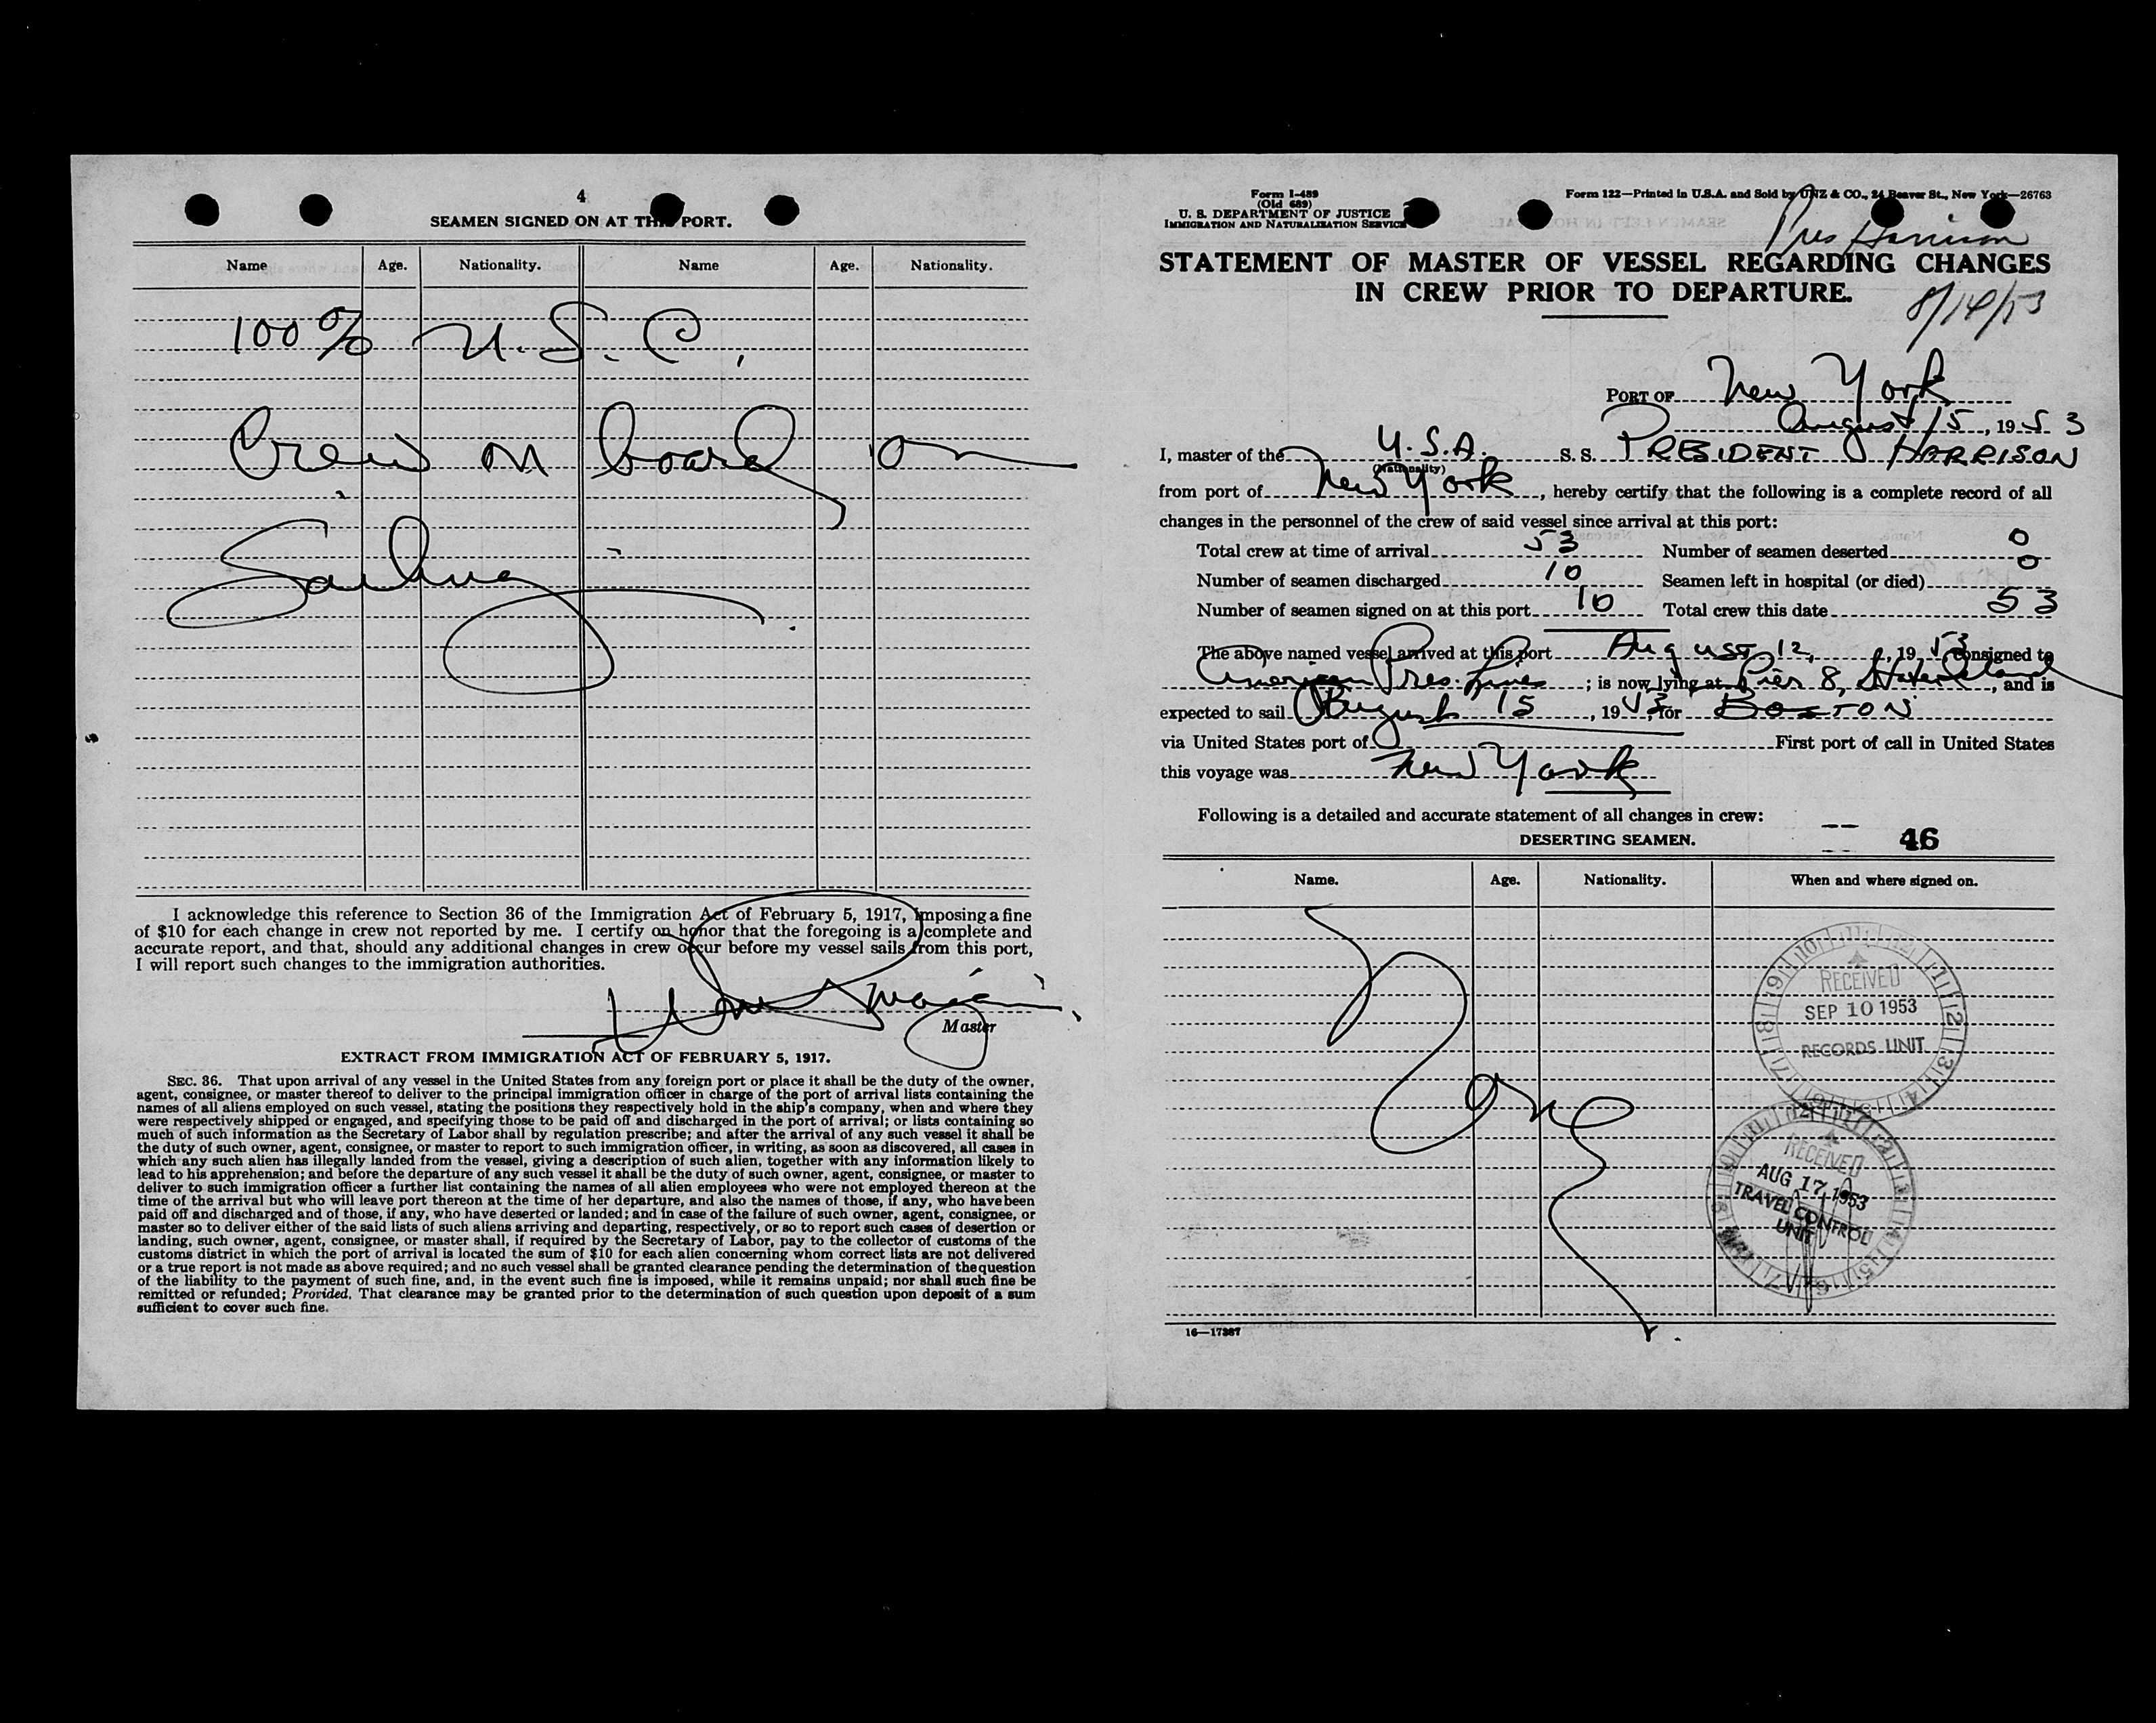 4
SEAMEN SIGNED ON AT THIS PORT.
Name Age. Nationality. Name Age. Nationality.
100% U.S.C.
Crew on board on
Sailing
I acknowledge this reference to Section 36 of the Immigration Act of February 5, 1917, imposing a fine
of $10 for each change in crew not reported by me. I certify on honor that the foregoing is a complete and
accurate report, and that, should any additional changes in crew occur before my vessel sails from this port,
I will report such changes to the immigration authorities.
Master
EXTRACT FROM IMMIGRATION ACT OF FEBRUARY 5, 1917.
SEC. 36. That upon arrival of any vessel in the United States from any foreign port or place it shall be the duty of the owner,
agent, consignee, or master thereof to deliver to the principal immigration officer in charge of the port of arrival lists containing the
names of all aliens employed on such vessel, stating the positions they respectively hold in the ship's company, when and where they
were respectively shipped or engaged, and specifying those to be paid off and discharged in the port of arrival; or lists containing so
much of such information as the Secretary of Labor shall by regulation prescribe; and after the arrival of any such vessel it shall be
the duty of such owner, agent, consignee, or master to report to such immigration officer, in writing, as soon as discovered, all cases in
which any such alien has illegally landed from the vessel, giving a description of such alien, together with any information likely to
lead to his apprehension; and before the departure of any such vessel it shall be the duty of such owner, agent, consignee, or master to
deliver to such immigration officer a further list containing the names of all alien employees who were not employed thereon at the
time of the arrival but who will leave port thereon at the time of her departure, and also the names of those, if any, who have been
paid off and discharged and of those, if any, who have deserted or landed; and in case of the failure of such owner, agent, consignee, or
master so to deliver either of the said lists of such aliens arriving and departing, respectively, or so to report such cases of desertion or
landing, such owner, agent, consignee, or master shall, if required by the Secretary of Labor, pay to the collector of customs of the
customs district in which the port of arrival is located the sum of $10 for each alien concerning whom correct lists are not delivered
or a true report is not made as above required; and no such vessel shall be granted clearance pending the determination of the question
of the liability to the payment of such fine, and, in the event such fine is imposed, while it remains unpaid; nor shall such fine be
remitted or refunded; Provided, That clearance may be granted prior to the determination of such question upon deposit of a sum
sufficient to cover such fine.
Form I-489
(Old 689)
U. S. DEPARTMENT OF JUSTICE
IMMIGRATION AND NATURALIZATION SERVICE
Form 122—Printed in U.S.A. and Sold by UNZ & CO., 24 Beaver St., New York—26763
Pres Harrison
STATEMENT OF MASTER OF VESSEL REGARDING CHANGES
IN CREW PRIOR TO DEPARTURE.
8/14/53
PORT OF New York
August 15, 1953
I, master of the U.S.A. S. S. PRESIDENT HARRISON
(Nationality)
from port of New York, hereby certify that the following is a complete record of all
changes in the personnel of the crew of said vessel since arrival at this port:
Total crew at time of arrival 53 Number of seamen deserted 0
Number of seamen discharged 10 Seamen left in hospital (or died) 0
Number of seamen signed on at this port 10 Total crew this date 53
The above named vessel arrived at this port August 12, 1953 consigned to
American Pres. Lines; is now lying at Pier 8, Staten Island, and is
expected to sail August 15, 1953, for BOSTON
via United States port of First port of call in United States
this voyage was New York
Following is a detailed and accurate statement of all changes in crew:
DESERTING SEAMEN. 46
Name. Age. Nationality. When and where signed on.
None
RECEIVED
SEP 10 1953
RECORDS UNIT
RECEIVED
AUG 17 1953
TRAVEL CONTROL
UNIT
16—17387